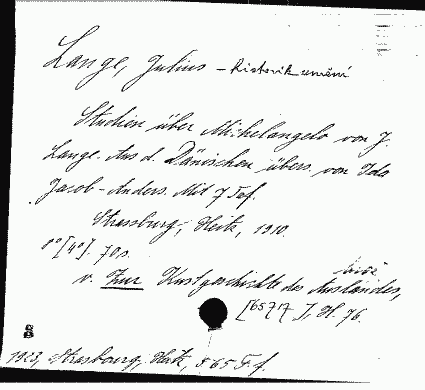 Lange, Julius – historik umění
Studien über Michelangelo von J.
Lange. Aus d. Dänischen übers. von Ida
Jacob-Anders. Mit 7 Taf.
Strassburg, Heitz, 1910.
8° [4°]. 70 s.
v. Zur Kunstgeschichte des Auslandes,
[657]7 J, H. 76.
8
1913, Strasbourg, Heitz, 865 F. f.